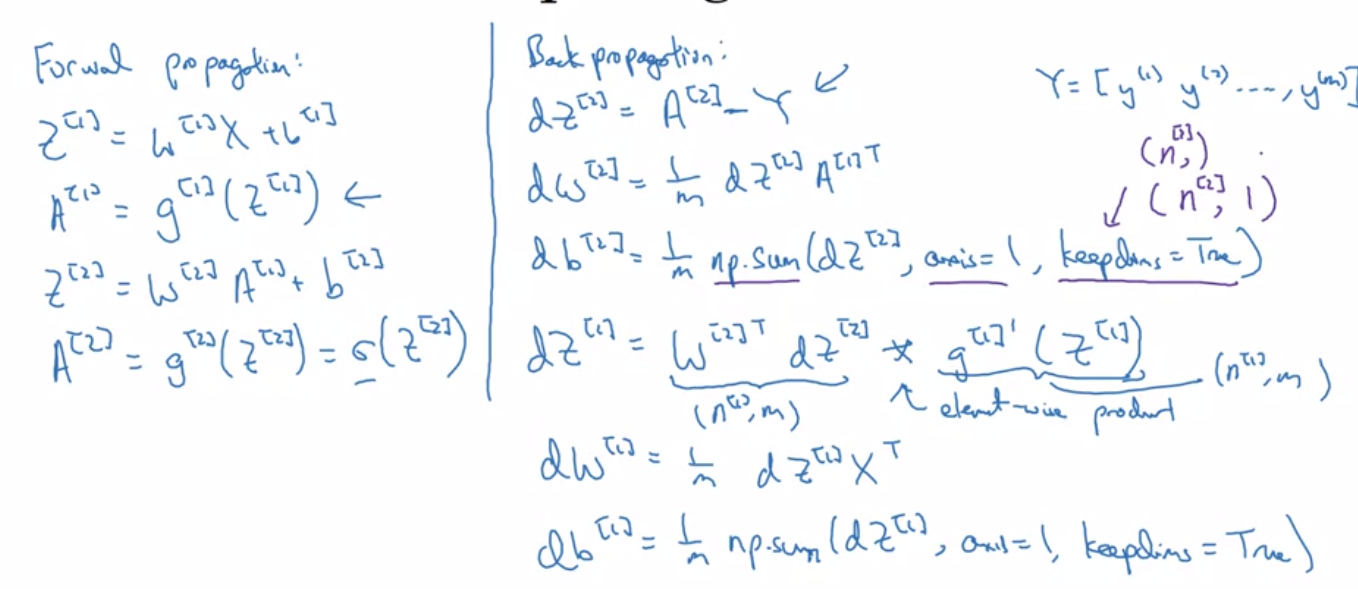 Forward propagation:
Z^[1] = W^[1] X + b^[1]
A^[1] = g^[1](Z^[1]) ←
Z^[2] = W^[2] A^[1] + b^[2]
A^[2] = g^[2](Z^[2]) = σ(Z^[2])
Back propagation:
dZ^[2] = A^[2] - Y ↙
dW^[2] = 1/m dZ^[2] A^[1]T
db^[2] = 1/m np.sum(dZ^[2], axis=1, keepdims=True)
dZ^[1] = W^[2]T dZ^[2] * g^[1]'(Z^[1])
(n^[1], m) ↖ element-wise product (n^[1], m)
dW^[1] = 1/m dZ^[1] X^T
db^[1] = 1/m np.sum(dZ^[1], axis=1, keepdims=True)
Y = [y^(1) y^(2) ..., y^(m)]
(n^[2],)
↙ (n^[2], 1)